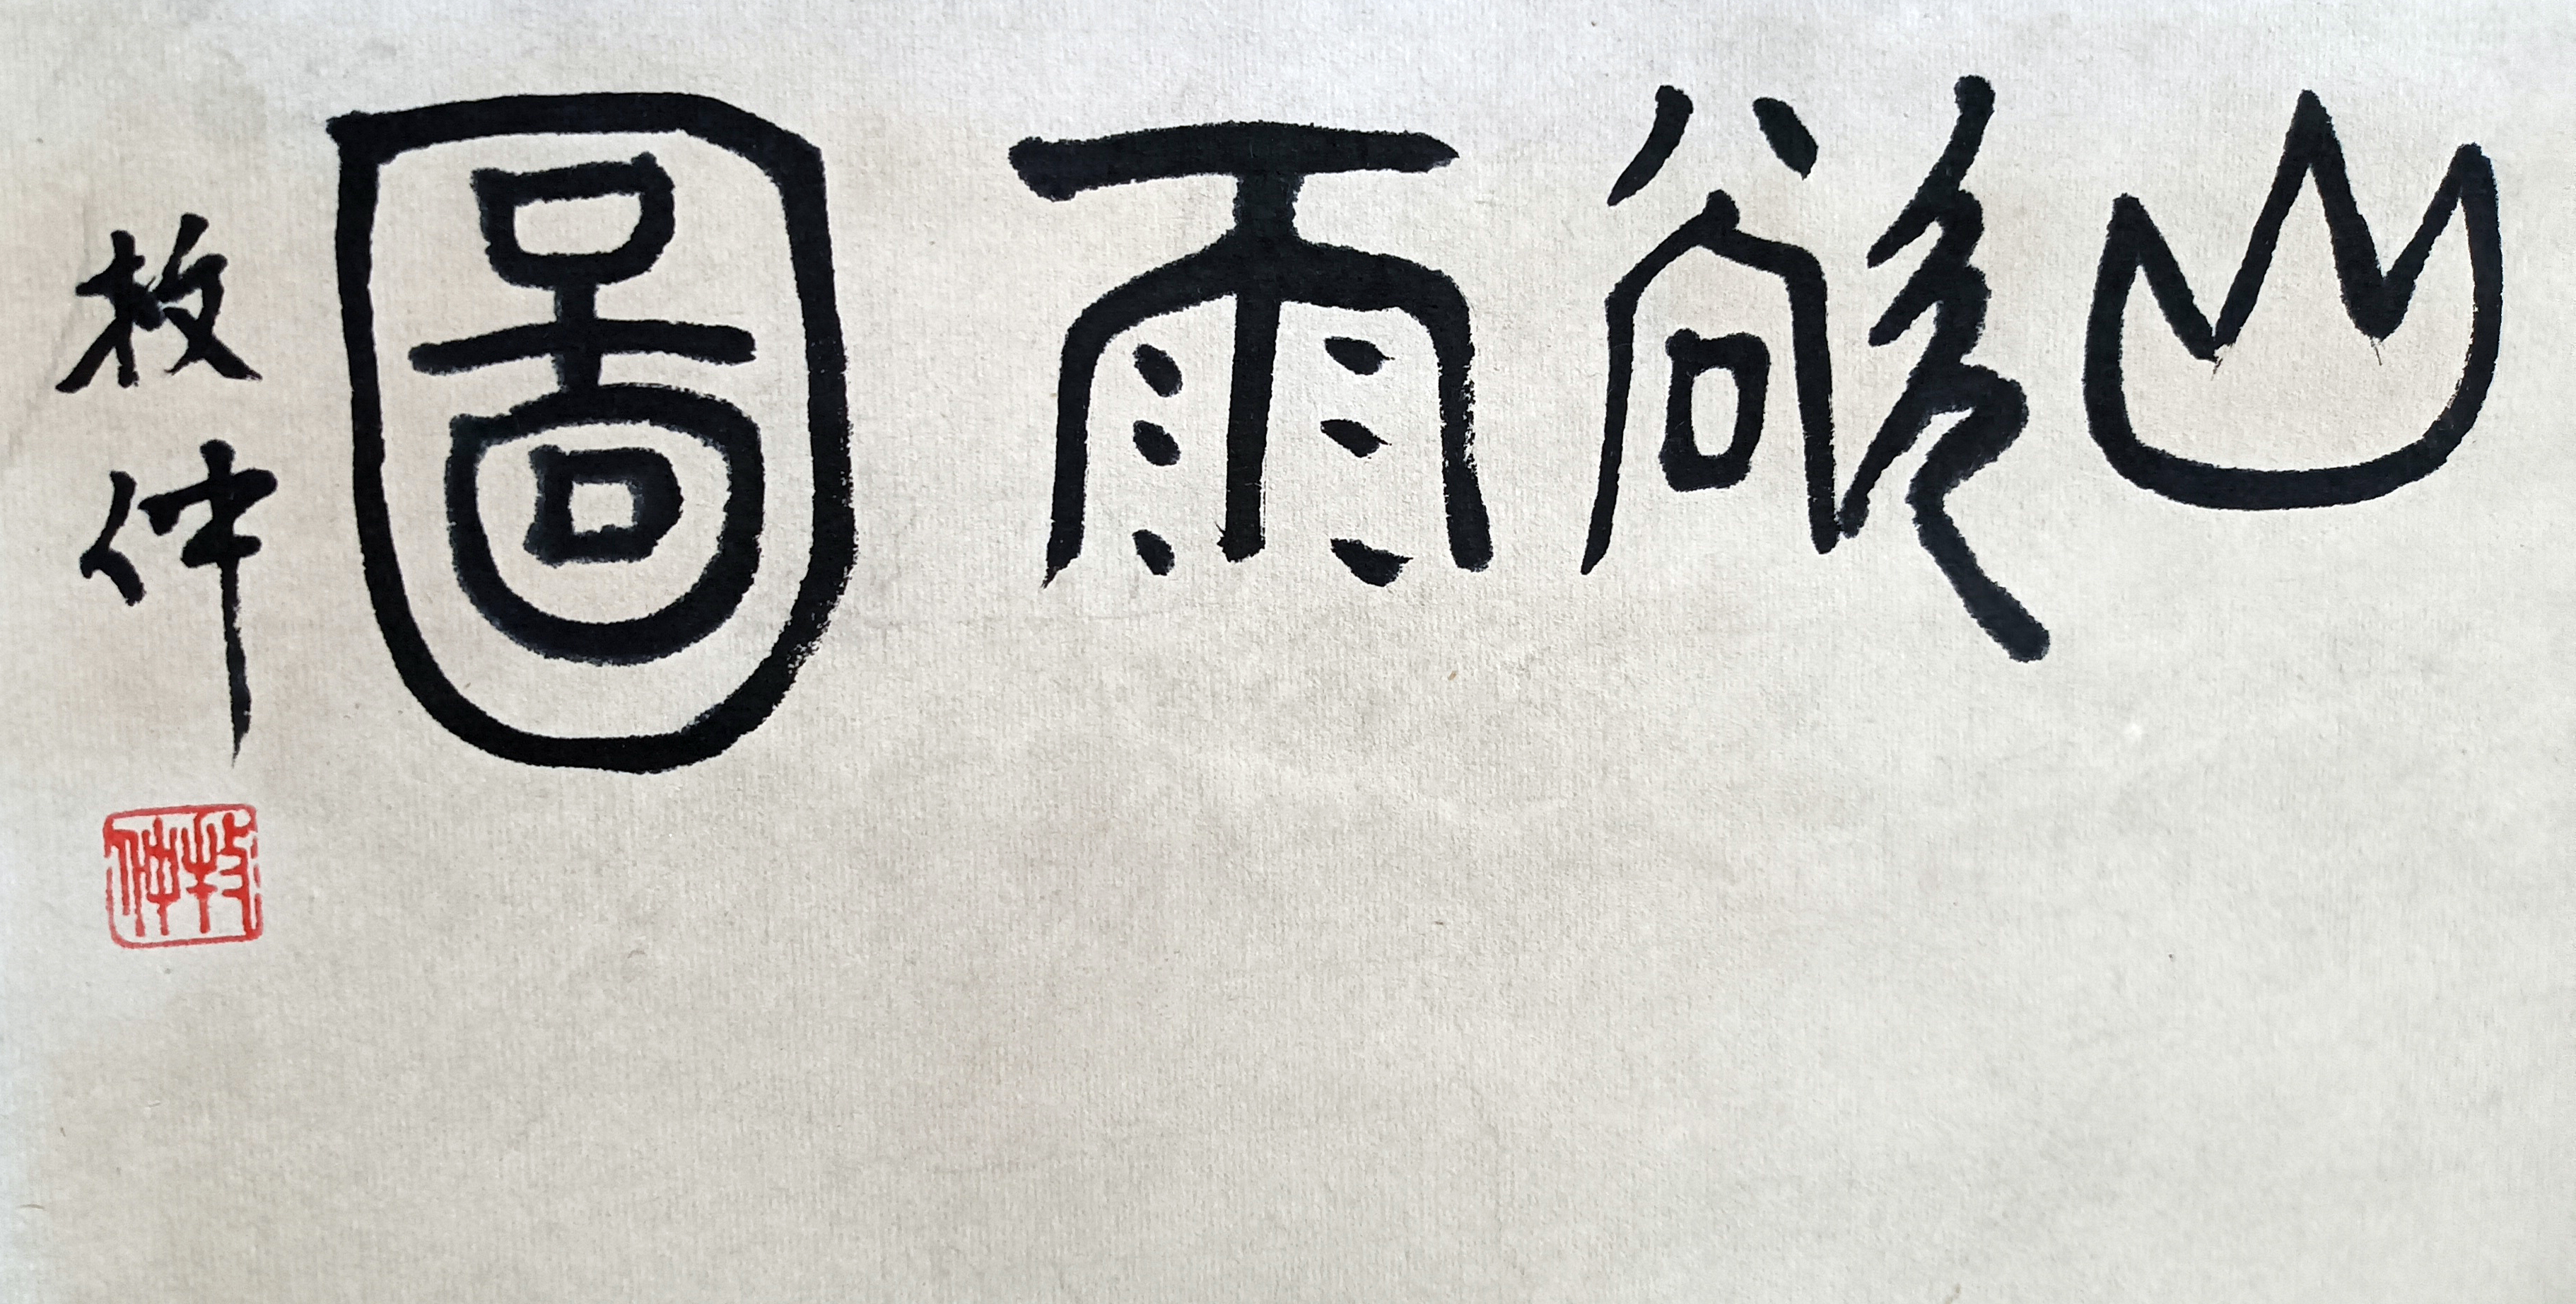 山欲雨圖
枚仲
枚仲